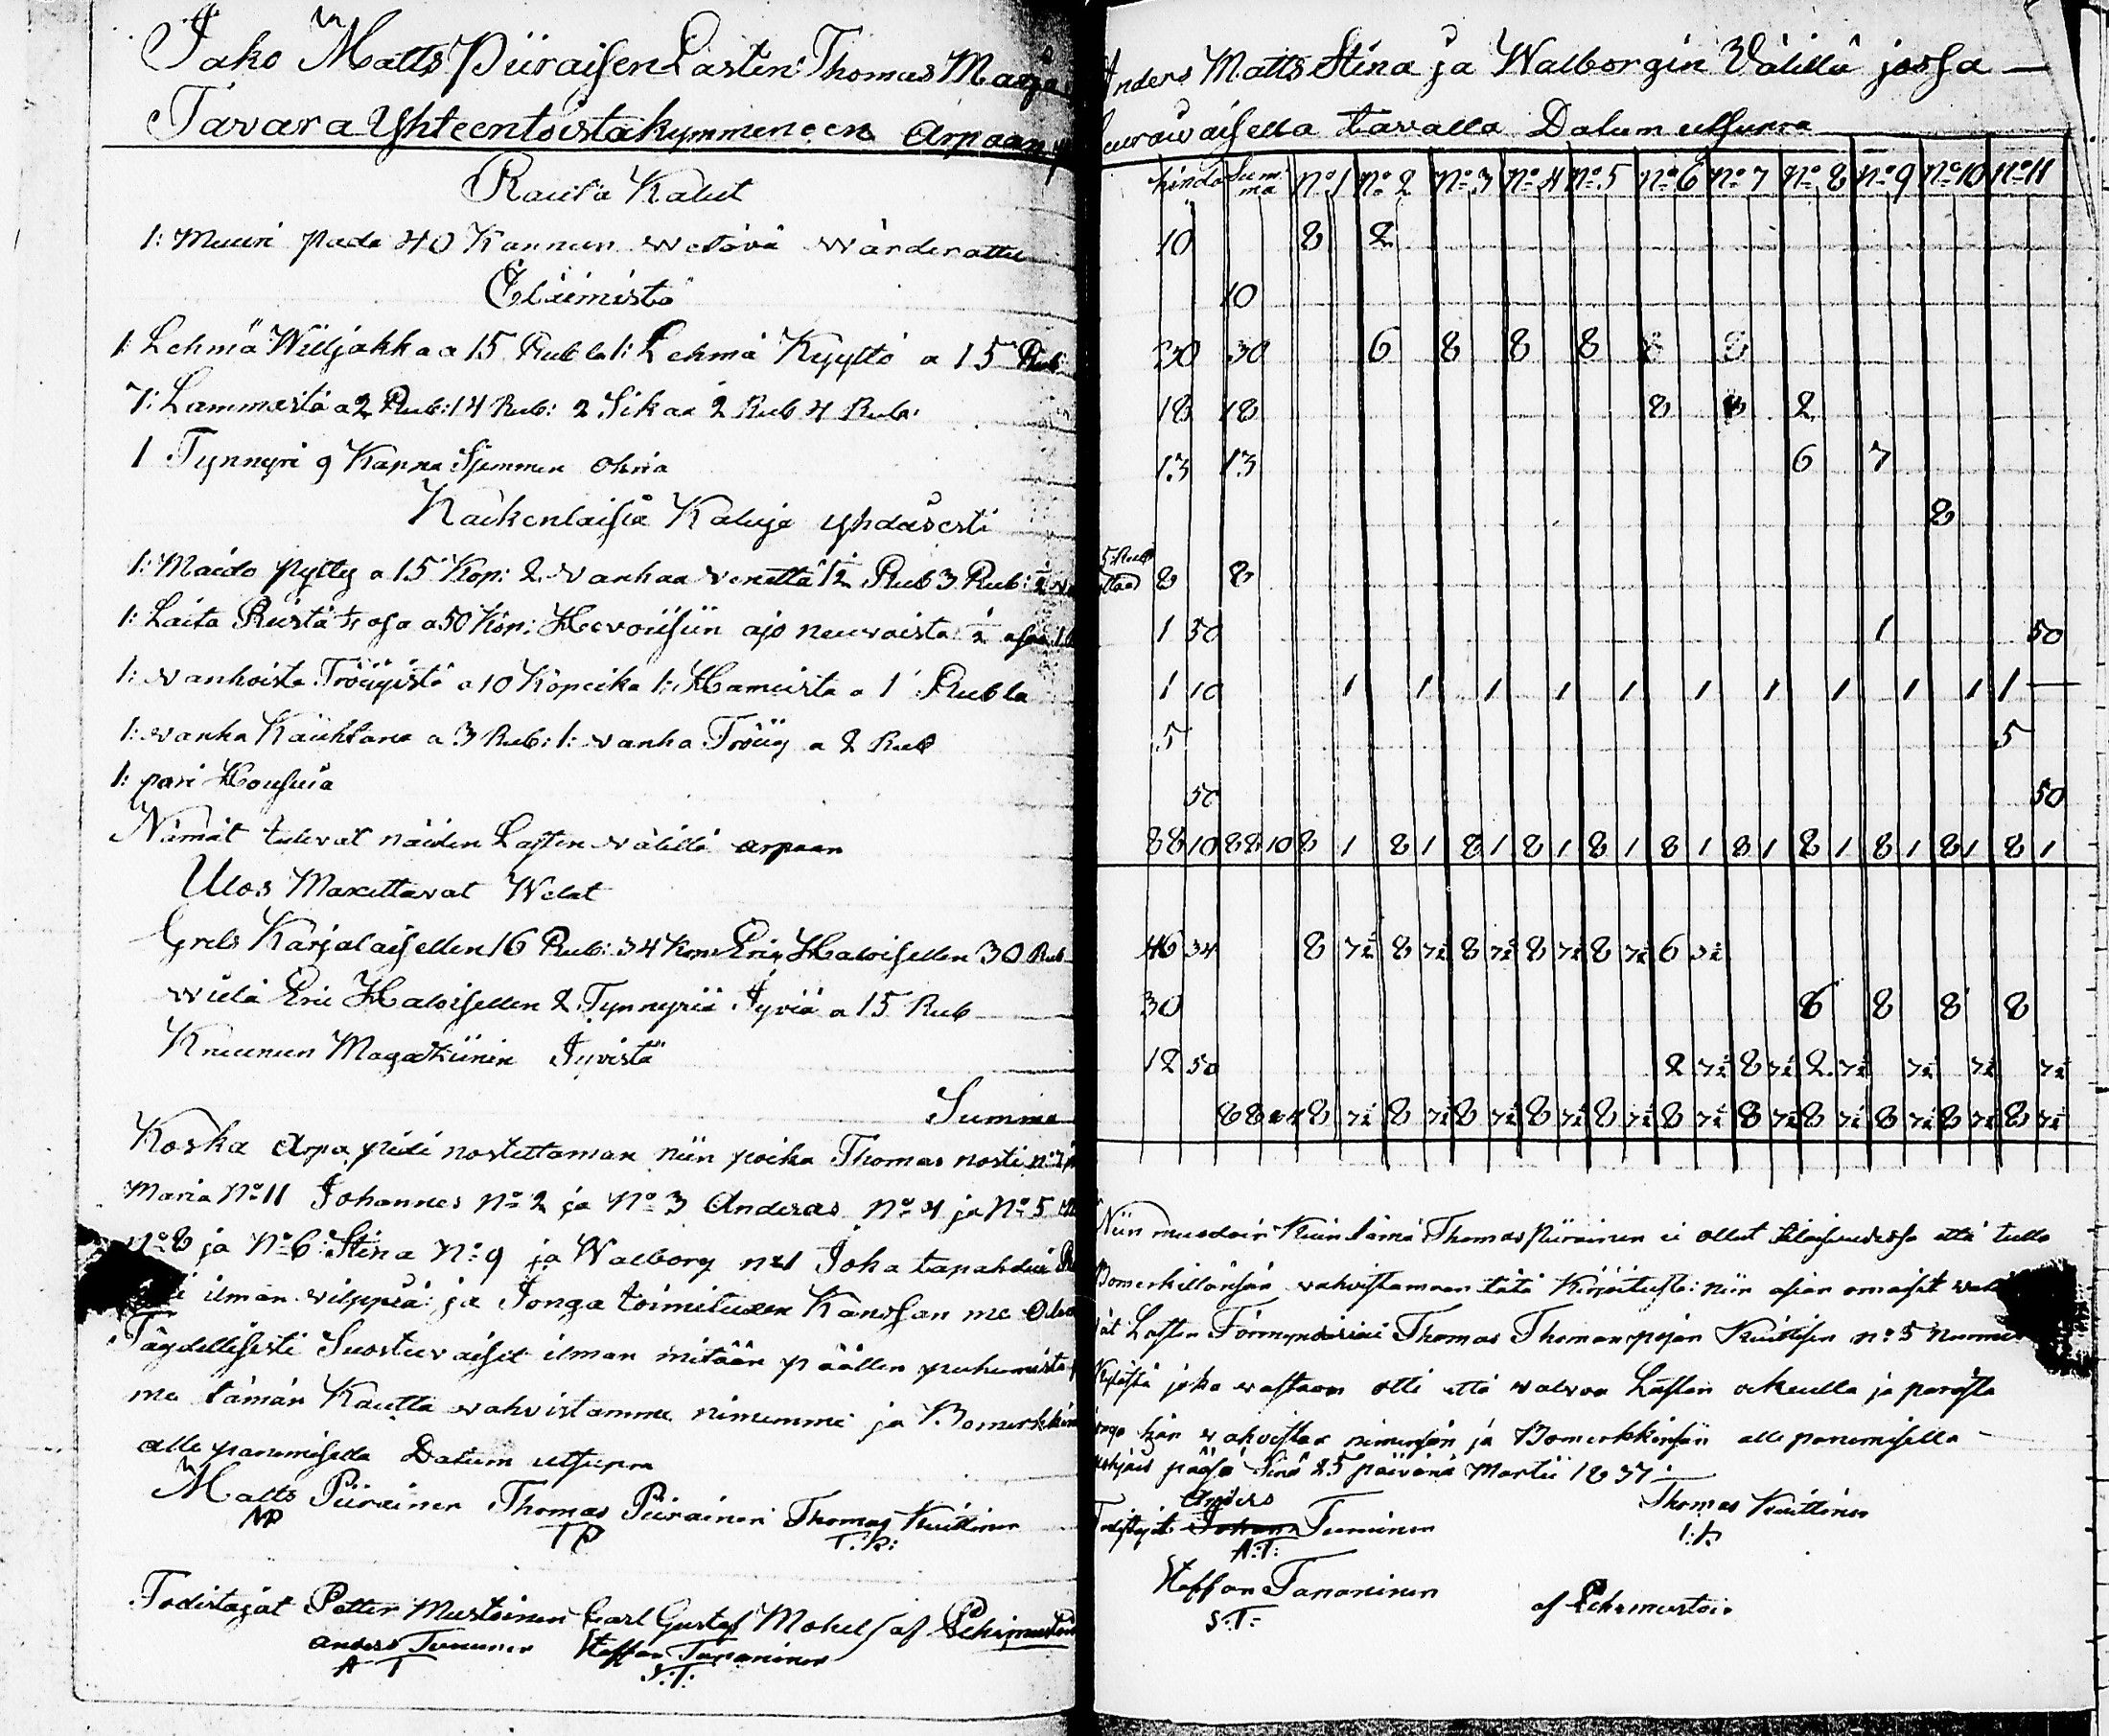 Jako Matts Piiraisen Lasten Thomas Marja
Tavara Yhteentoistakymmeneen Arpaan
Rauta Kalut
1: Muuri pada 40 Kannun wetävä wärderattu
Eläimistä
1: Lehmä Williakka a 15 Rubla 1: Lehmä Kyyttö a 15 Rub:
7: Lammasta a 2 Rub: 14 Rub: 2 Sikaa 2 Rub 4 Rub:
1 Tynnyri 9 Kappa Siemmen ohria
Kaikenlaisia Kaluja yhdäsesti
1: Maido pytty a 15 Kop: 2 wanhaa wenettä 1½ Rub 3 Rub: ½
1: Laita Riistä ¼ osa a 50 Kop: Hevoisiin ajo neuvoista ½ osaa
1: wanhoista Tröijyistä a 10 Kopeika 1: Hameista a 1 Rubla
1: wanha Kauhtana a 3 Rub: 1: wanha Tröijy a 2 Rub
1: pari Housuia
Nämät tulevat näiden Lasten wälillä arpaan
Ulos Maxettavat Welat
Grels Karjalaisellen 16 Rub: 34 Kop: Eric Haloisellen 30 Rub
wielä Eric Haloisellen 2 Tynnyriä Jyviä a 15 Rub
Kruunun Magatsiinin Jyvistä
Summa
Koska Arpa pidi nostettaman niin poika Thomas nosti No 7
Maria No 11 Johannes No 2 ja No 3 Anderas No 4 ja No 5
No 8 ja No 6: Stina No 9 ja Walborg No 1 Joka tapahdui
ilman wilppiä: ja Jonga toimituxen Kanssan me olem
Täydellisesti Suostuvaiset ilman mitään päällen puhumista
me tämän Kautta wahvistamme nimemme ja Bomerkkim
alle panemisella Datum utsupra
Matts Piirainen Thomas Piirainen Thomas Kuittinen
MP TP T:K:
Todistajat Petter Mustoinen Carl Gustaf Mokel af
Anders Tuminen Steffan Tananinen
A T S:T:
Anders Matts Stina ja Walborgin Välillä jossa
seuravaisella tavalla Datum utsupra
hinda Summa No 1 No 2 No 3 No 4 No 5 No 6 No 7 No 8 No 9 No 10 No 11
10 8 2
10
30 30 6 8 8 8
18 18 8 2
13 13 6 7
8
5 Rub
8 8
1 50 1 50
1 10 1 1 1 1 1 1 1 1 1 1 1 —
5 5
50 50
88 10 88 10 8 1 8 1 8 1 8 1 8 1 8 1 8 1 8 1 8 1 8 1 8 1
46 34 8 7½ 8 7½ 8 7½ 8 7½ 8 7½ 6 3½
30 6 8 8 8
12 50 2 7½ 8 7½ 2 7½ 7½ 7½ 7½
88 84 8 7½ 8 7½ 8 7½ 8 7½ 8 7½ 8 7½ 8 7½ 8 7½ 8 7½ 8 7½ 8 7½
Niin muodoin Kuin tämä Thomas Piirainen ei ollut tilaisuudessa että tulla
Bomerkillänsän wahvistamaan tätä Kirjoitusta: niin asian omaiset
Lasten Förmyndärini Thomas Thoman pojan Kuittisen No 5
joka wastaan otti että walvoa Lasten oikeutta ja parasta
hän wahvistaa nimensän ja Bomerkkinsän alle panemisella
Sinä 25 päivänä Martii 1837
Anders
Todistajat Johan Tuminen Thomas Kuittinen
A:T: T:K
Steffan Tananinen
S:T: